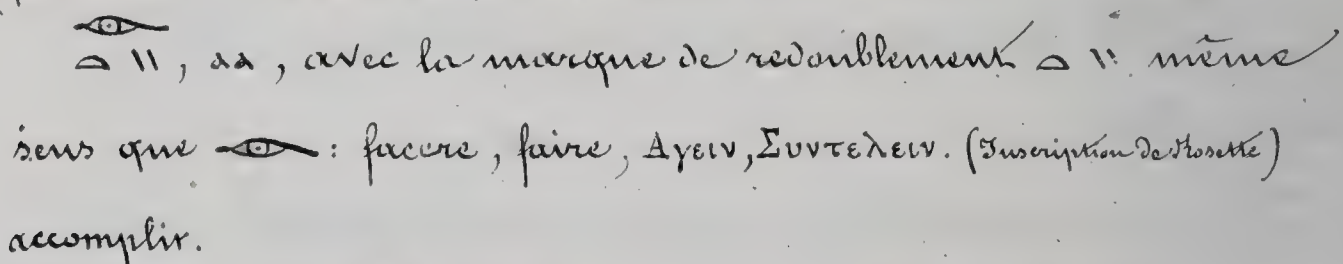 𓁹𓏏𓏭, ⲁⲁ, avec la marque de redoublement 𓏏𓏭 même
sens que 𓁹: facere, faire, Αγειν, Συντελειν. (Inscription de Rosette)
accomplir.